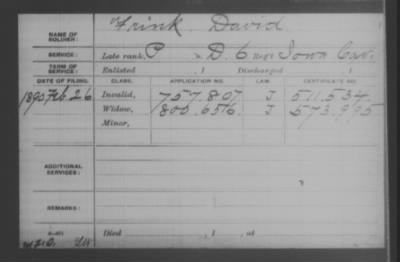 NAME OF SOLDIER: Frink, David
SERVICE: Late rank, P , D, 6 Reg't Iowa Cav.
TERM OF SERVICE: Enlisted , 1 Discharged , 1
DATE OF FILING. CLASS. APPLICATION NO. LAW. CERTIFICATE NO.
1890 Feb 26 Invalid, 757.807 J 511.534
Widow, 805.656 J 573.995
Minor,
ADDITIONAL SERVICES:
REMARKS:
Died , 1 , at